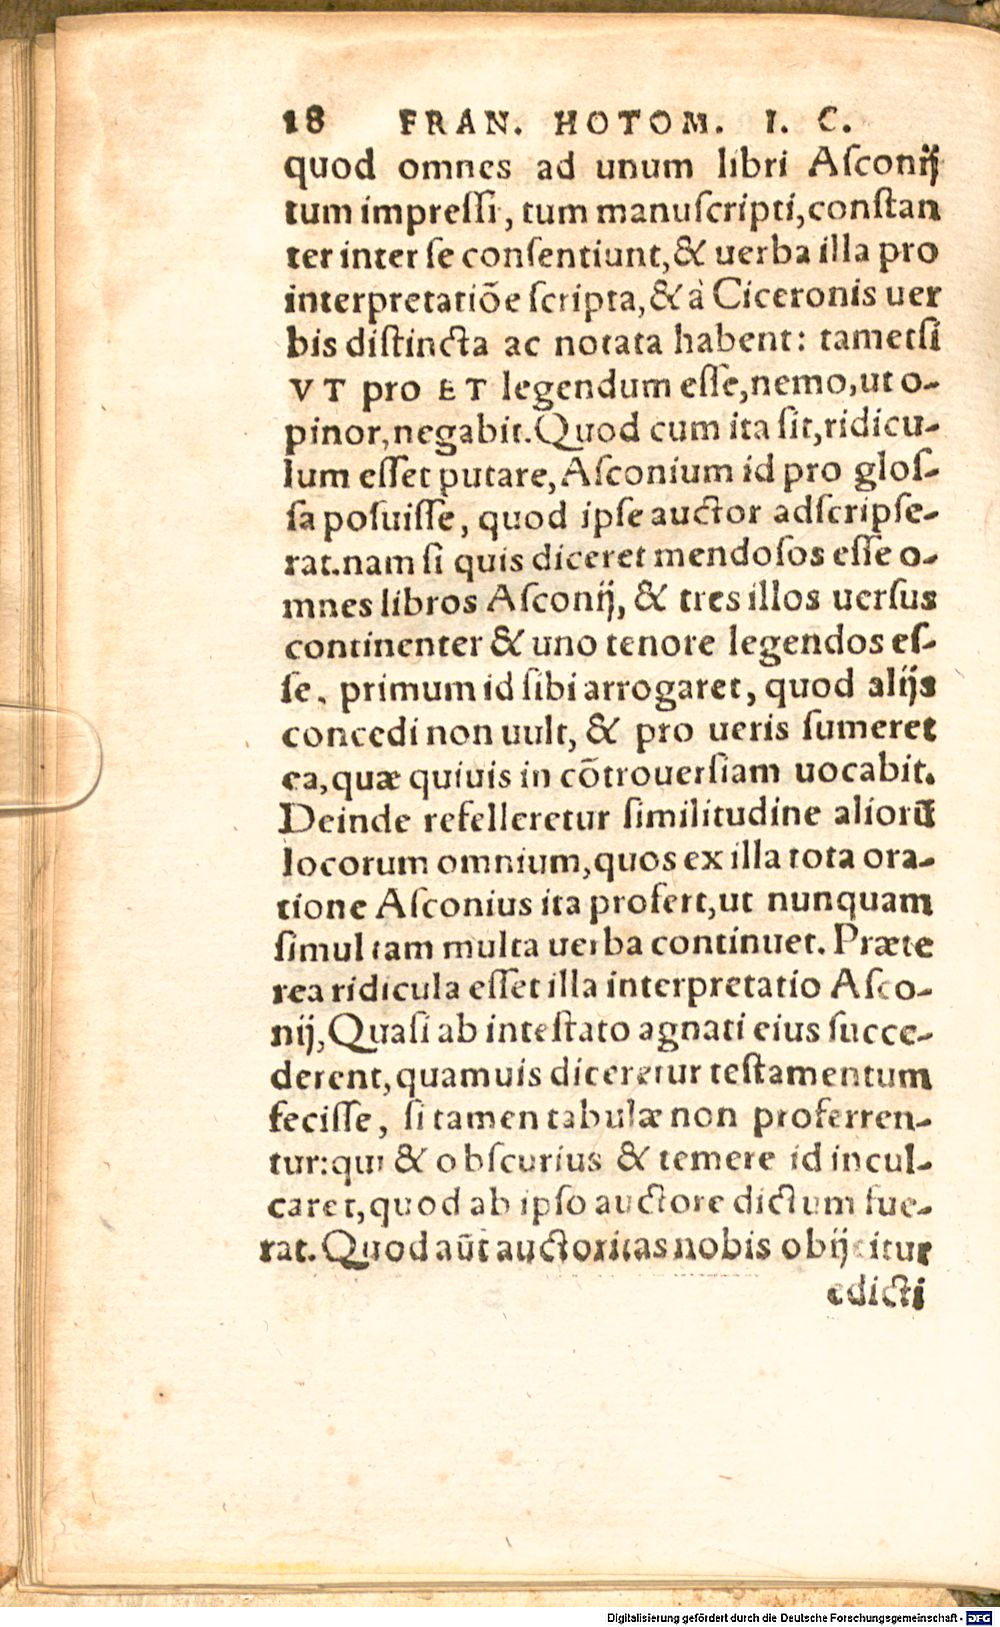 18 FRAN. HOTOM. I. C.
quod omnes ad unum libri Aſconij
tum impreſſi, tum manuſcripti, conſtan
ter inter ſe conſentiunt, & uerba illa pro
interpretatiõe ſcripta, & à Ciceronis uer
bis diſtincta ac notata habent: tametſi
VT pro ET legendum eſſe, nemo, ut o-
pinor, negabit. Quod cum ita ſit, ridicu-
lum eſſet putare, Aſconium id pro gloſ-
ſa poſuiſſe, quod ipſe auctor adſcripſe-
rat. nam ſi quis diceret mendoſos eſſe o-
mnes libros Aſconij, & tres illos uerſus
continenter & uno tenore legendos eſ-
ſe, primum id ſibi arrogaret, quod alijs
concedi non uult, & pro ueris ſumeret
ea, quæ quiuis in cõtrouerſiam uocabit.
Deinde refelleretur ſimilitudine aliorũ
locorum omnium, quos ex illa tota ora-
tione Aſconius ita profert, ut nunquam
ſimul tam multa uerba continuet. Præte
rea ridicula eſſet illa interpretatio Aſco-
nij, Quaſi ab inteſtato agnati eius ſucce-
derent, quamuis diceretur teſtamentum
feciſſe, ſi tamen tabulæ non proferren-
tur: qui & obſcurius & temere id incul-
caret, quod ab ipſo auctore dictum fue-
rat. Quod aũt auctoritas nobis obijcitur
edicti
Digitalisierung gefördert durch die Deutsche Forschungsgemeinschaft - DFG